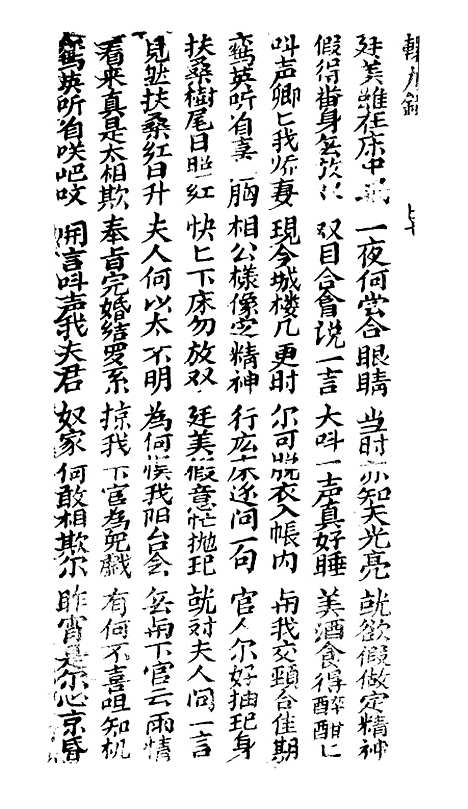 廷美雖在床中 一夜何尝合眼睛 当时亦知天光亮 就欲假做定精神
假得番身 双目合會说一言 大叫一声真好睡 美酒食得醉酣匕
叫声卿匕我娇妻 現今城楼几更时 尔可脱衣入帳内 甪我交頸合佳期
鸾英听有喜一胸 相公樣像定精神 行広床还问一句 官人尔好抽玘身
扶桑樹尾日照红 快匕下床勿放 廷美假意忙抛玘 就对夫人问一言
見对扶桑红日升 夫人何以太不明 為何悮我阳台会 无甪下官云雨情
看来真是太相欺 奉旨完婚結罗系 掠我下官為兒戲 有何不喜咀知机
鸾英听有咲吧吧 開言叫声我夫君 奴家何敢相欺尔 昨宵是尔心京昏